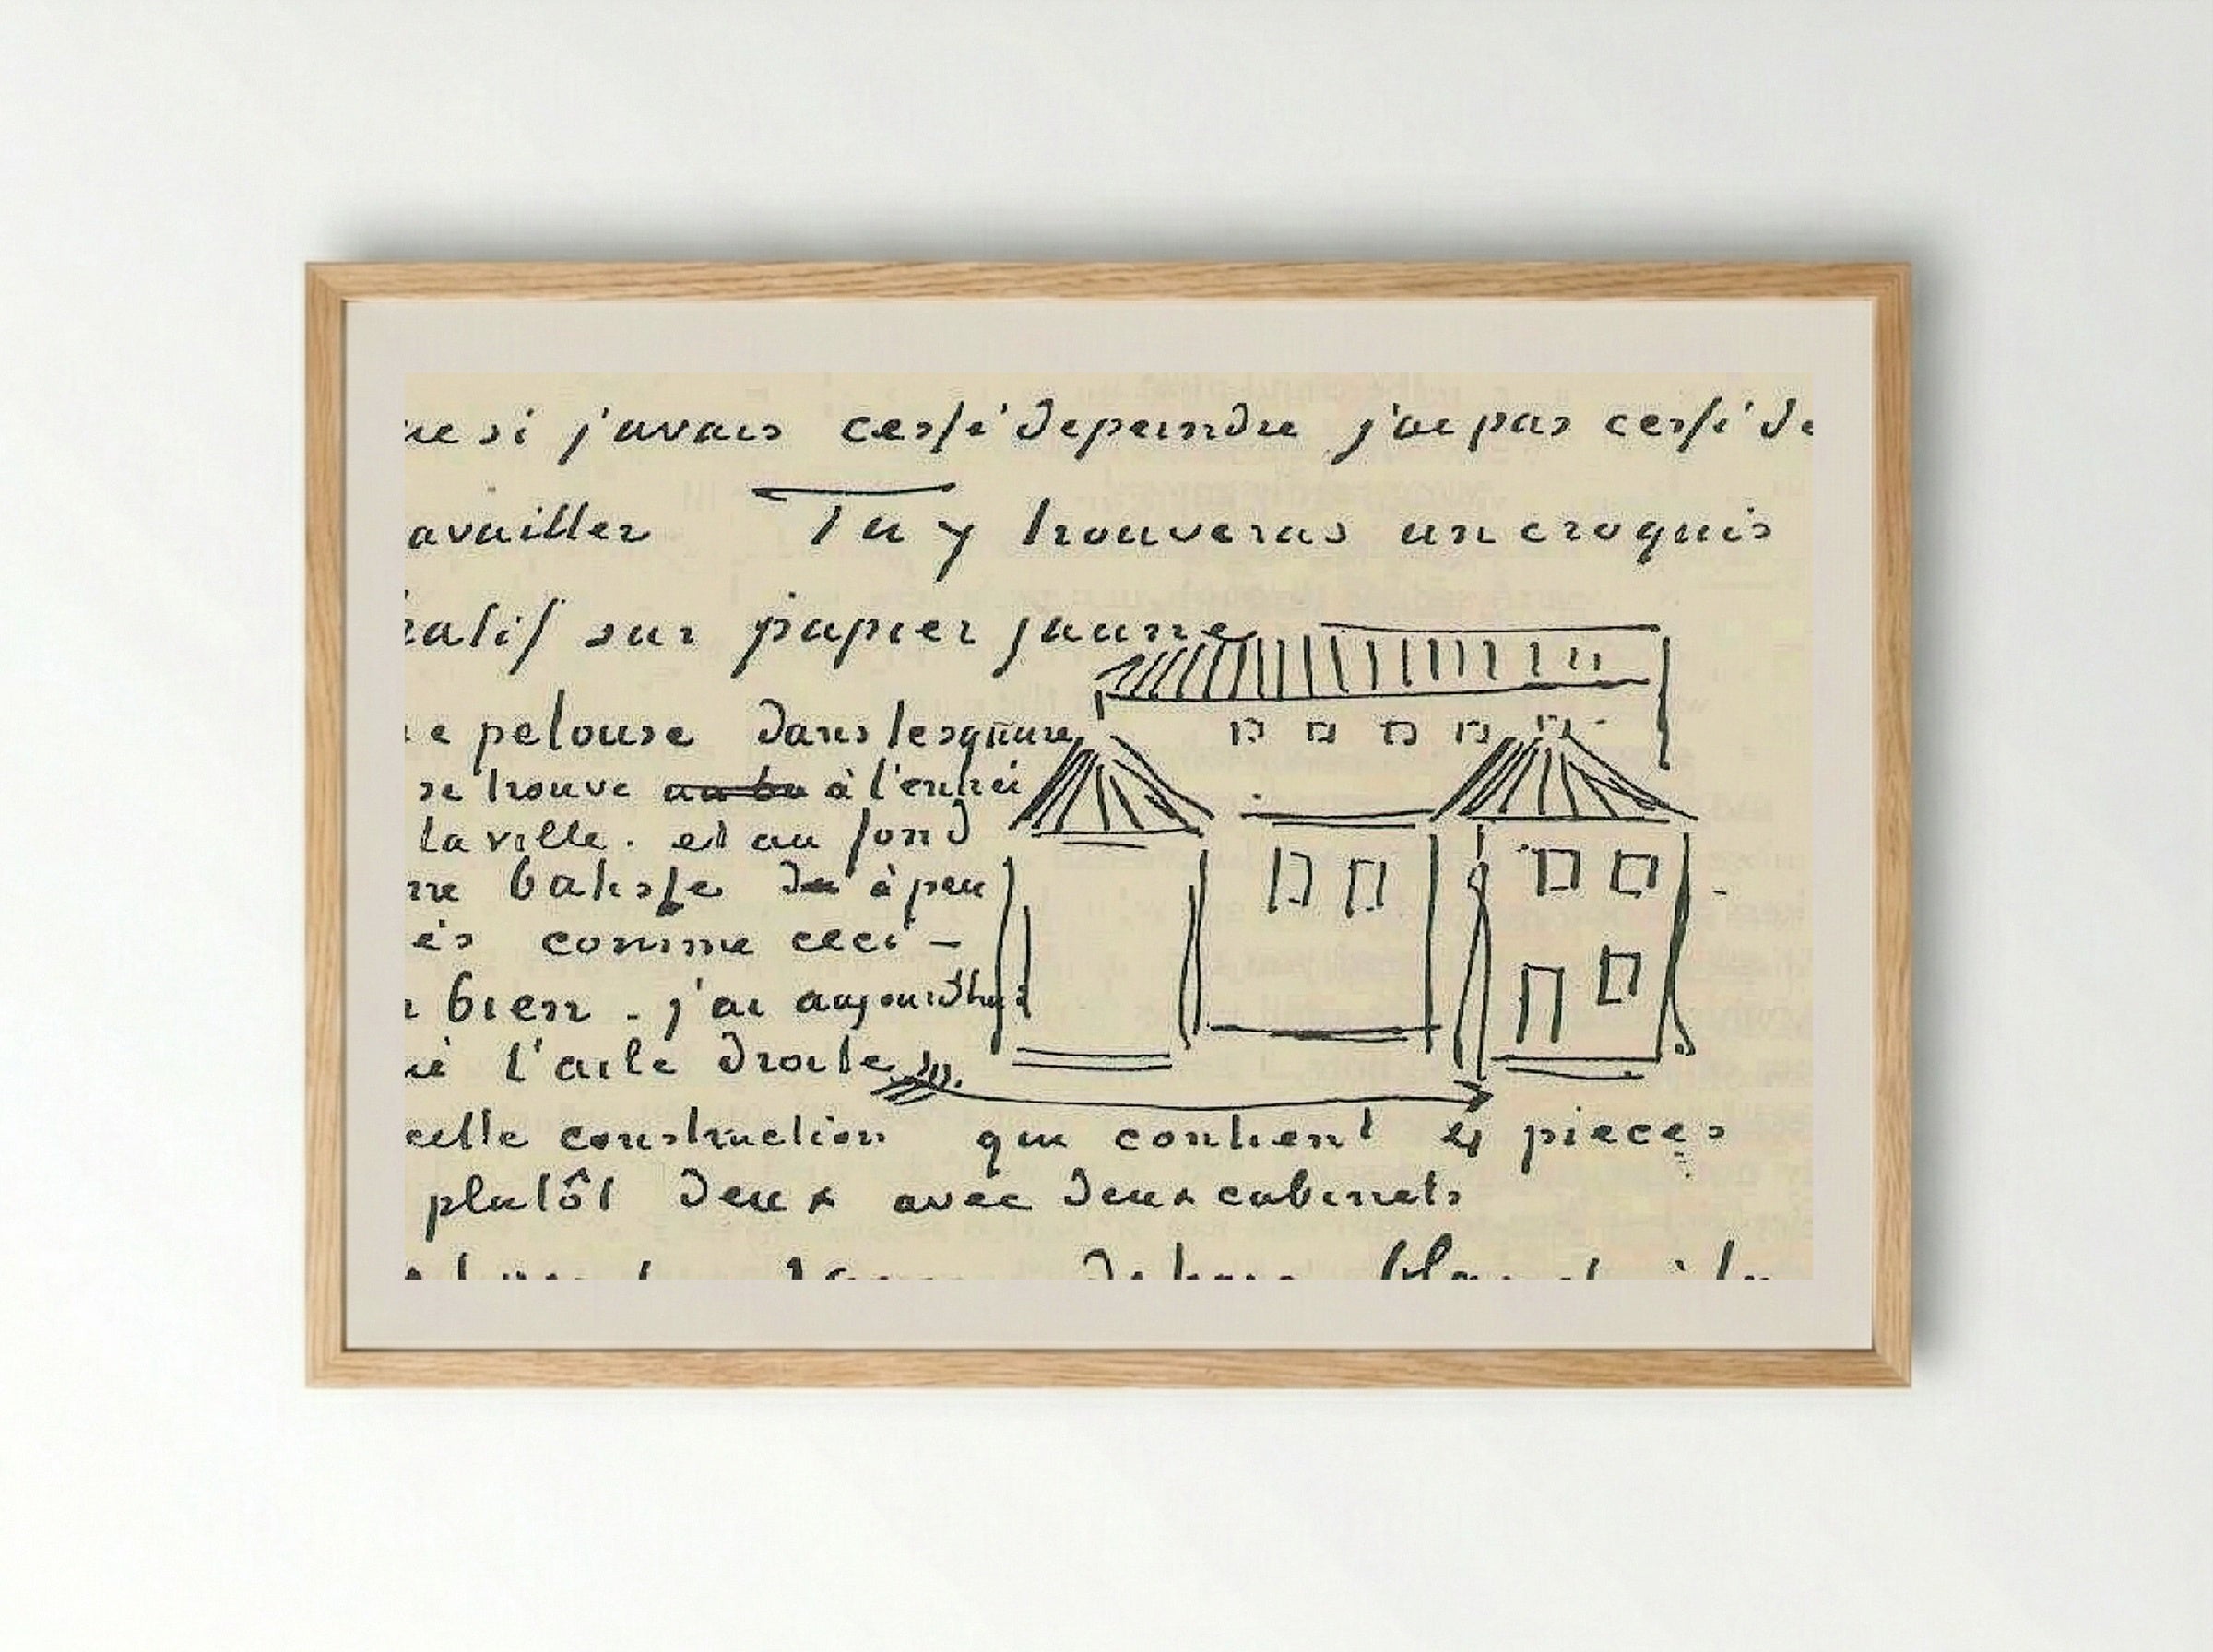 ue si j'avais cessé de peindre j'ai pas cessé de
availler Tu y trouveras un croquis
hatif sur papier jaune
e pelouse dans le square
se trouve à l'entrée
la ville. et au fond
ne batisse à peu
ès comme ceci –
bien – j'ai aujourd'hui
ué l'aile droite
cette construction qui contient 4 pieces
plutôt deux avec deux cabinets